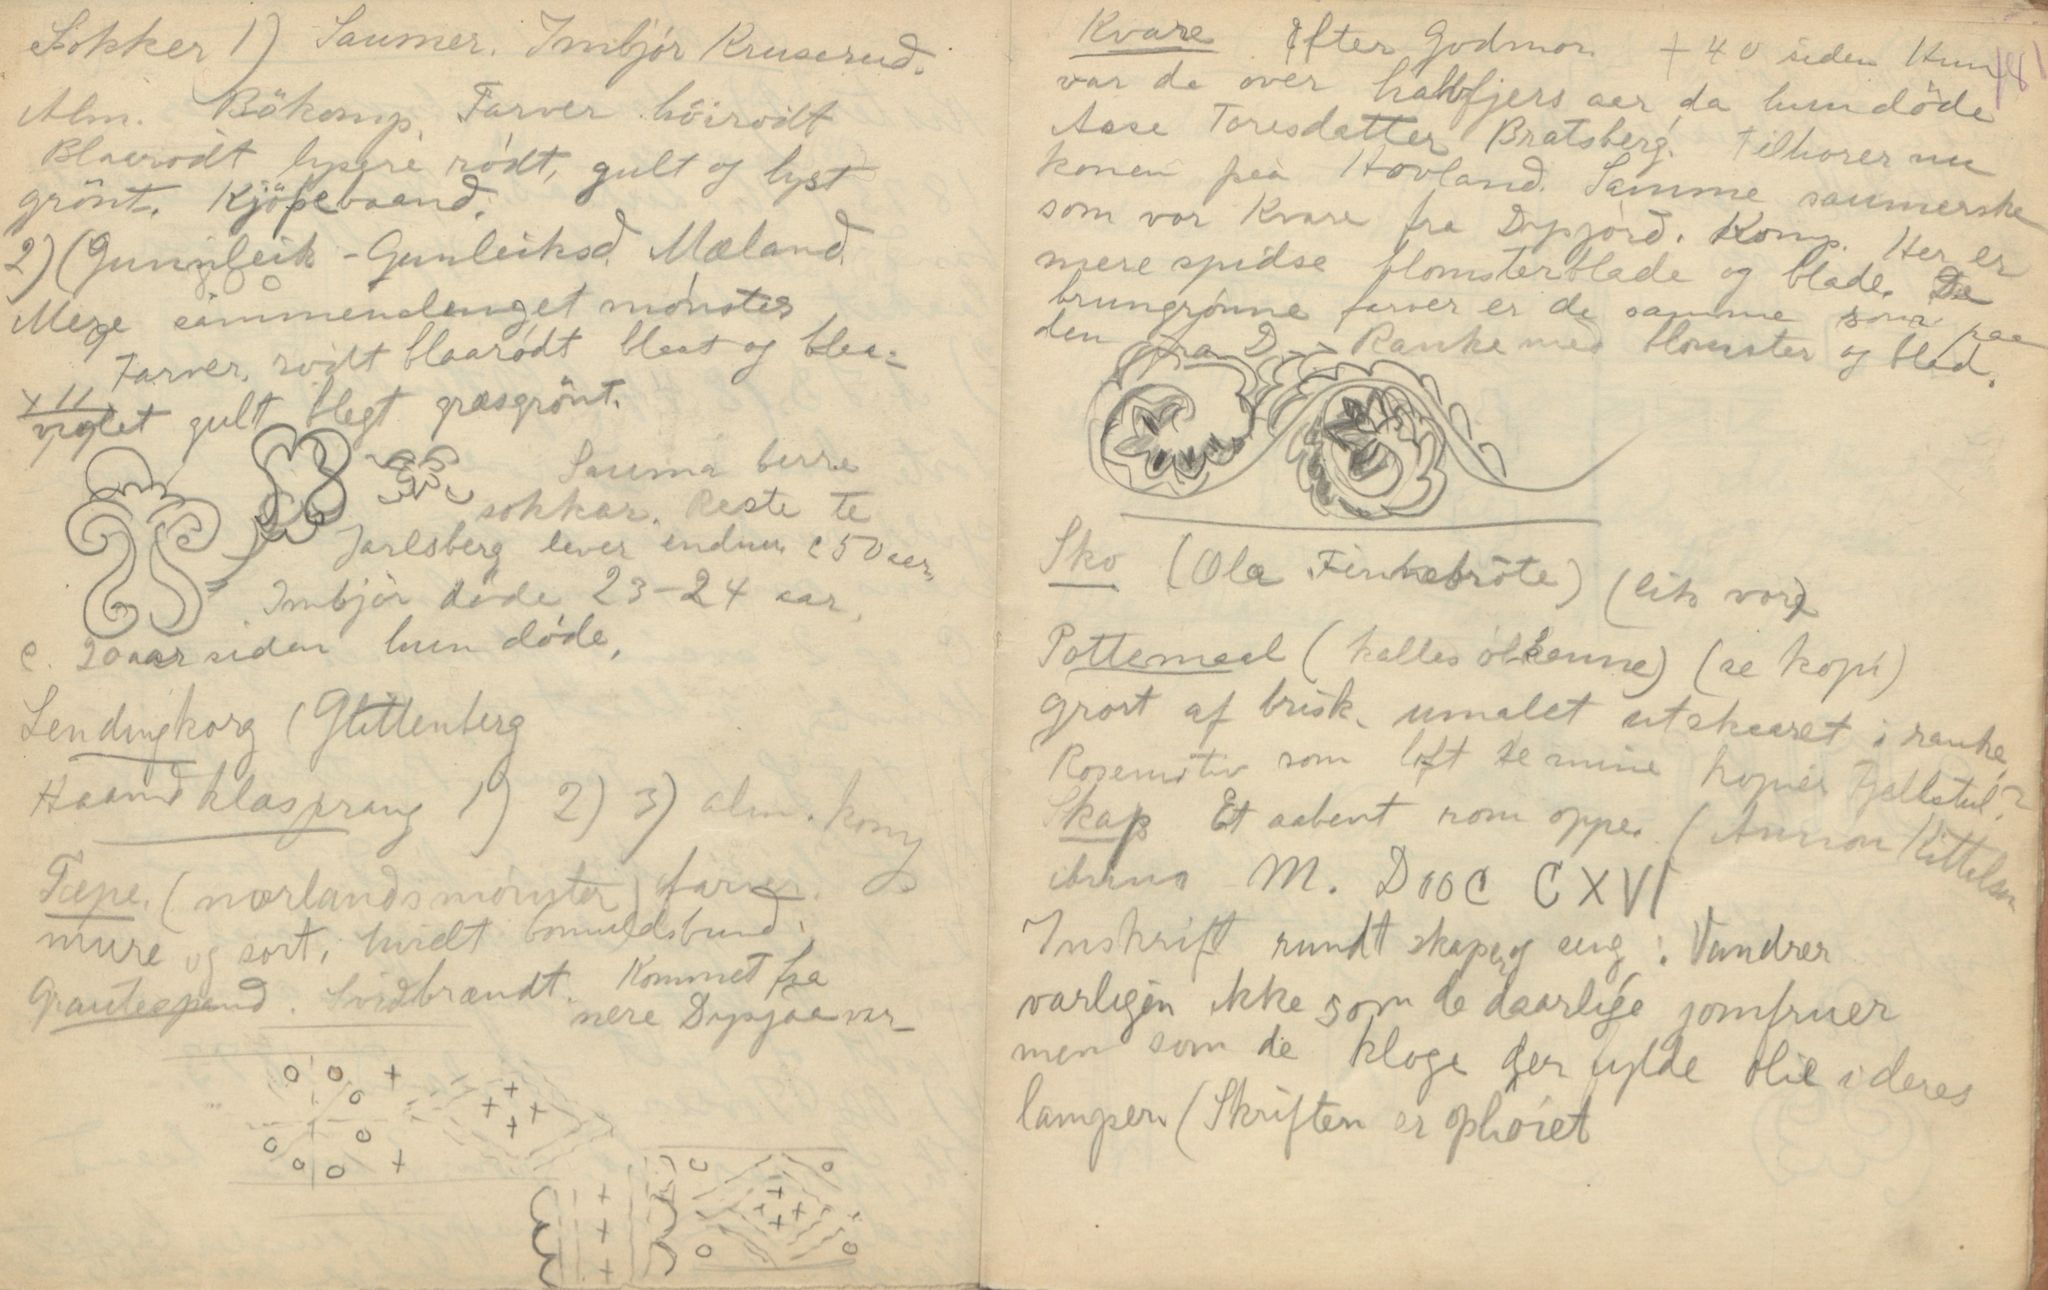 Sokker 1) Saumer. Imbjör Kruserud.
Alm. Bökomp. Farver höirödt
Blaarödt lysere rödt, gult og lyst
grönt. Kjöpebaand.
2) (Gunnleik - Gunleiksd. Mæland.
Mere sammenslenget mönster
Farver, rödt blaarödt blaat og blaa=
violet gult blegt græsgrönt.
Sauma berre
sokkar. Reste te
Jarlsberg lever endnu c 50 aar,
Imbjör döde 23-24 aar,
c. 20 aar siden hun döde,
Sendingkorg (Glittenberg
Haandklæsprang 1) 2) 3) alm. komp
Tæpe. (nordlandsmönster) farver.
mure og sort, hvidt bomuldsbund.
Grautespand. Svidbrændt. Kommet fra
nere Dypjaa
Kvare Efter Godmor + 40 siden Hun
181
var da over halvfjers aar da hun döde
Aase Toresdatter Bratsberg. Tilhorer nu
konen paa Hovland. Samme saumerske
som var Kvare fra Dypjörd. Komp. Her er
mere spidse blomsterblade og blade. De
brungrönne farver er de samme som paa
den fra D. Ranke med blomster og blad.
Sko (Ola Finkebröte) (lik vore)
Pottemaal (kalles ölkanne) (se kopi)
gjort af brisk. umalet utskaaret i ranke,
Rosemotiv som loft se mine kopier Fjellstul?
Skap Et aabent rom oppe. (Annon Kittelsen
M. DooC CXVI
Inskrift rundt skaper og seng: Vandrer
varligen ikke som de daarlige jomfruer
men som de kloge der fylde olie i deres
lamper. (Skriften er ophöiet